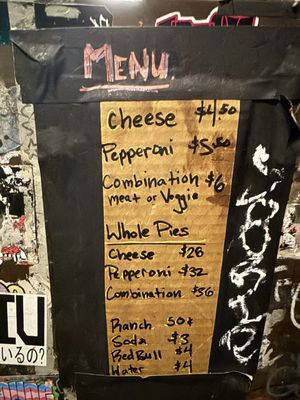 MENU.
Cheese $4.50
Pepperoni $5.50
Combination $6
meat or Veggie
Whole Pies
Cheese $28
Pepperoni $32
Combination $36
Ranch 50¢
Soda $3
Red Bull $4
Water $4
いるの?